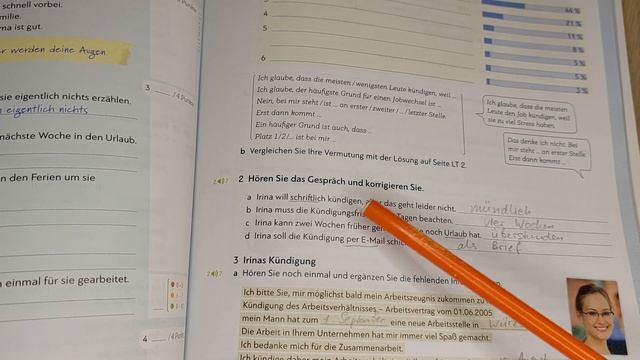 schnell vorbei.
milie.
ma ist gut.
er werden deine Augen.
sie eigentlich nichts erzählen.
eigentlich nichts
nächste Woche in den Urlaub.
n den Ferien um sie
einmal für sie gearbeitet.
3 /4 Punkte
4 /4 Punkte
3
4
5
6
64 %
21 %
11 %
8 %
5 %
5 %
3 %
Ich glaube, dass die meisten / wenigsten Leute kündigen, weil ...
Ich glaube, der häufigste Grund für einen Jobwechsel ist ...
Nein, bei mir steht / ist ... an erster / zweiter / ... / letzter Stelle.
Erst dann kommt ...
Ein häufiger Grund ist auch, dass ...
Platz 1/2/... ist bei mir ...
Ich glaube, dass die meisten
Leute den Job kündigen, weil
sie zu viel Stress haben.
Das denke ich nicht. Bei
mir steht ... an erster Stelle.
Erst dann kommt ...
b Vergleichen Sie Ihre Vermutung mit der Lösung auf Seite LT 2.
2 Hören Sie das Gespräch und korrigieren Sie.
a Irina will schriftlich kündigen, das geht leider nicht. mündlich
b Irina muss die Kündigungsfris Tagen beachten. vier Wochen
c Irina kann zwei Wochen früher ge noch Urlaub hat. überstunden
d Irina soll die Kündigung per E-Mail schic als Brief
3 Irinas Kündigung
a Hören Sie noch einmal und ergänzen Sie die fehlenden
Ich bitte Sie, mir möglichst bald mein Arbeitszeugnis zukommen zu
Kündigung des Arbeitsverhältnisses – Arbeitsvertrag vom 01.06.2005
mein Mann hat zum 1 September eine neue Arbeitsstelle in
Die Arbeit in Ihrem Unternehmen hat mir immer viel Spaß gemacht.
Ich bedanke mich für die Zusammenarbeit.
Ich kündige daher mein